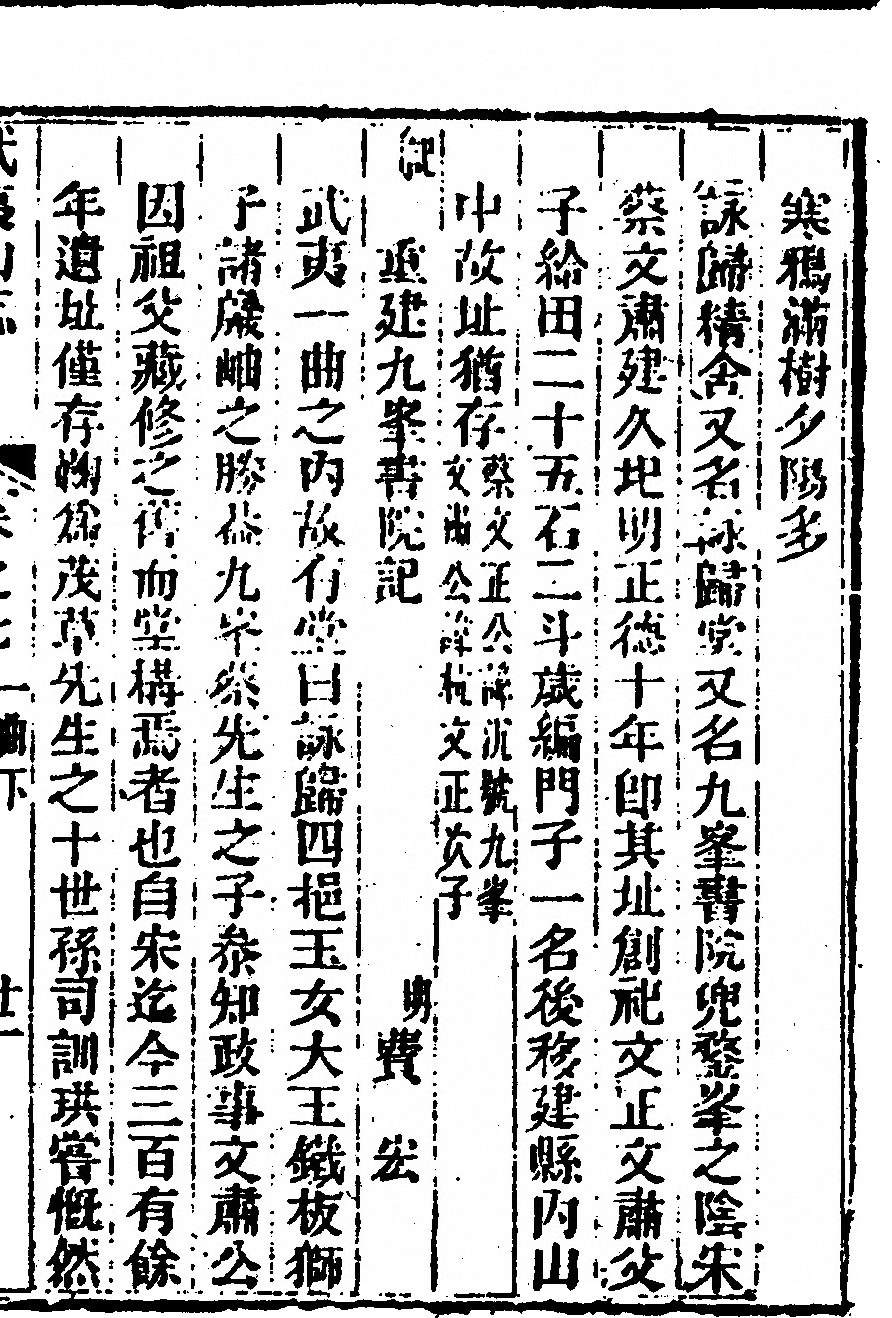 寒鴉滿樹夕陽多
詠歸精舍又名詠歸堂又名九峯書院兜鍪峯之陰宋
蔡文肅建久圯明正德十年卽其址創祀文正文肅父
子給田二十五石二斗歲編門子一名後移建縣內山
中故址猶存蔡文正公諱沉號九峯
文肅公諱杭文正次子
記
重建九峯書院記 明 費宏
武夷一曲之內故有堂曰詠歸四挹玉女大王鐵板獅
子諸巖岫之勝葢九峯蔡先生之子叅知政事文肅公
因祖父藏修之舊而堂構焉者也自宋迄今三百有餘
年遺址僅存鞠爲茂草先生之十世孫司訓珙嘗慨然
武夷山志 卷之七 一曲下 廿一